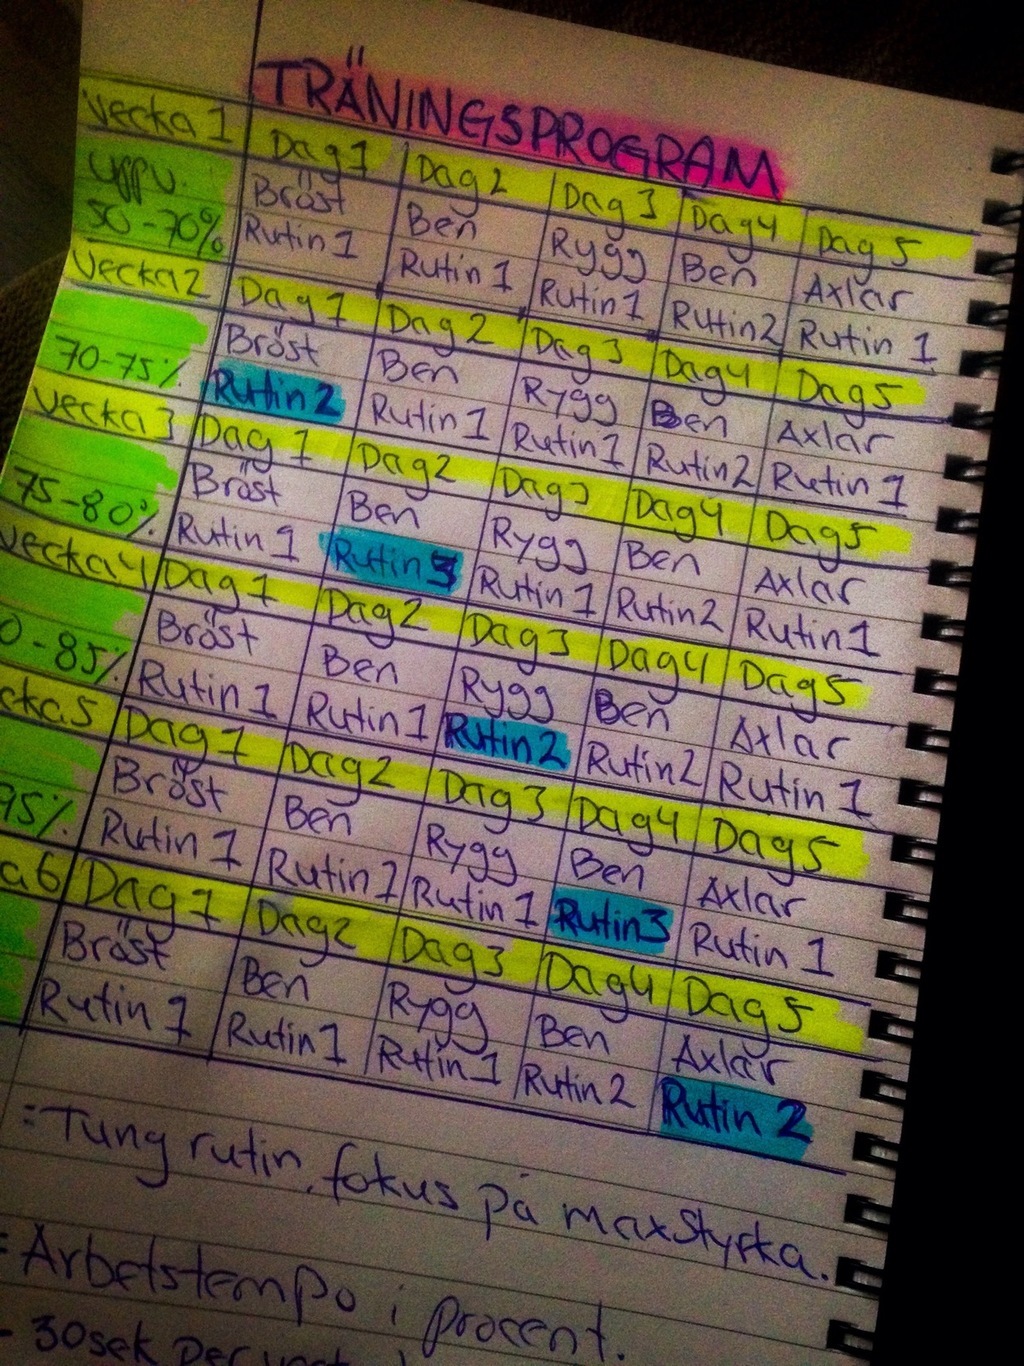 TRÄNINGSPROGRAM
Vecka 1 Dag 1 Dag 2 Dag 3 Dag 4 Dag 5
uppv. Bröst Ben Rygg Ben Axlar
50-70% Rutin 1 Rutin 1 Rutin 1 Rutin 2 Rutin 1
Vecka 2 Dag 1 Dag 2 Dag 3 Dag 4 Dag 5
Bröst Ben Rygg Ben Axlar
70-75% Rutin 2 Rutin 1 Rutin 1 Rutin 2 Rutin 1
Vecka 3 Dag 1 Dag 2 Dag 3 Dag 4 Dag 5
Bröst Ben Rygg Ben Axlar
75-80% Rutin 1 Rutin 3 Rutin 1 Rutin 2 Rutin 1
Vecka 4 Dag 1 Dag 2 Dag 3 Dag 4 Dag 5
Bröst Ben Rygg Ben Axlar
0-85% Rutin 1 Rutin 1 Rutin 2 Rutin 2 Rutin 1
cka 5 Dag 1 Dag 2 Dag 3 Dag 4 Dag 5
Bröst Ben Rygg Ben Axlar
95% Rutin 1 Rutin 1 Rutin 1 Rutin 3 Rutin 1
a 6 Dag 1 Dag 2 Dag 3 Dag 4 Dag 5
Bröst Ben Rygg Ben Axlar
Rutin 1 Rutin 1 Rutin 1 Rutin 2 Rutin 2
=Tung rutin, fokus på maxstyrka.
=Arbetstempo i procent.
- 30sek per